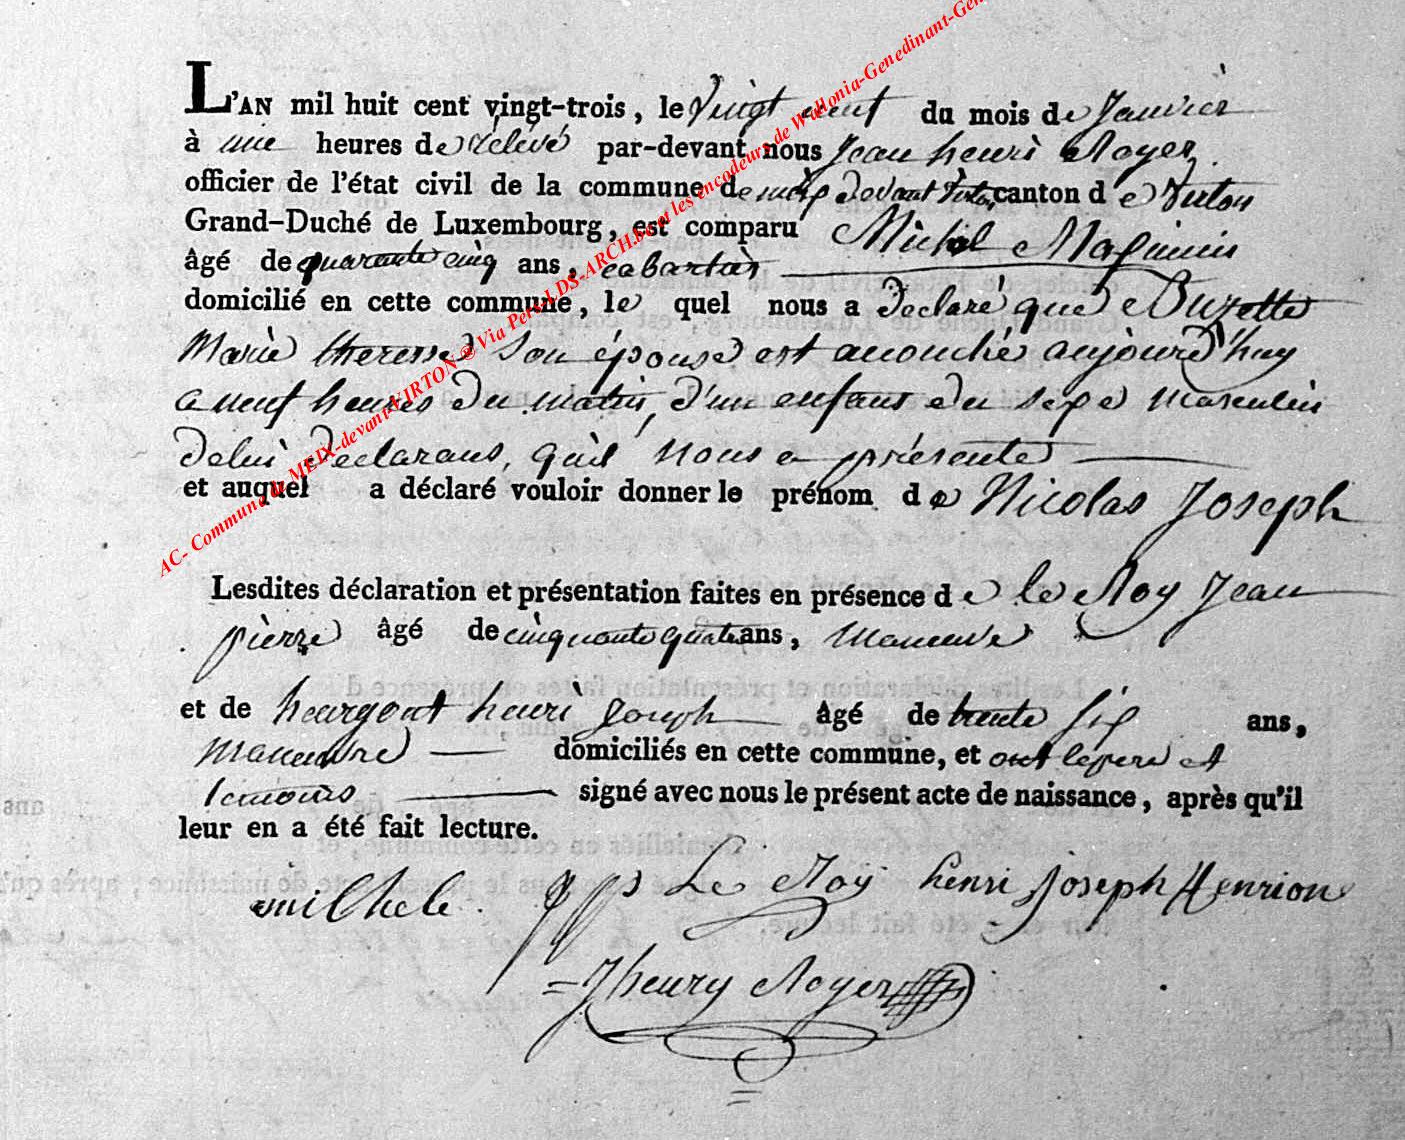 L'AN mil huit cent vingt-trois, le Vingt neuf du mois de Janvier
à une heures de relevé par-devant nous Jean henri Royer
officier de l'état civil de la commune de meix devant virton canton d e virton
Grand-Duché de Luxembourg, est comparu Michel Maginin
âgé de quarante cinq ans, cabartier
domicilié en cette commune, le quel nous a declaré que Buzette
Marie theresse son épouse est acouché aujourd'huy
a neuf heures du matin, d'un enfant du sexe masculin
de lui declarans, qu'il nous a présenté
et auquel a déclaré vouloir donner le prénom d e Nicolas Joseph
Lesdites déclaration et présentation faites en présence d e le Roy Jean
pierre âgé de cinquante quatre ans, maneuvre
et de henri Joseph âgé de trente six ans,
maneuvre domiciliés en cette commune, et ont le pere et
temoins signé avec nous le présent acte de naissance, après qu'il
leur en a été fait lecture.
Le Roy henri joseph Henrion
Jhenry Royer
AC- Commune de MEIX-devant-VIRTON ® Via Pers-LDS-ARCH.be et les encodeurs de Wallonia-Genedinant-Gen